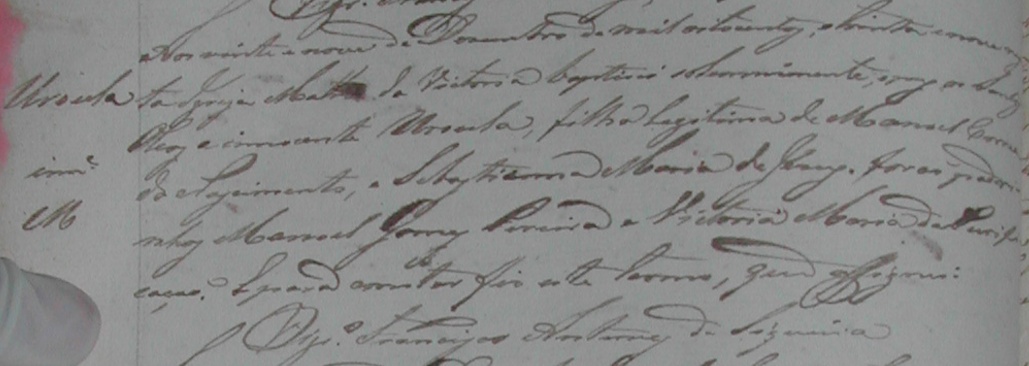 Aos vinte e nove de Dezembro de mil oitocentos, e trinta e nove nes
Ursula
ta Igreja Matriz da Victoria baptisei solemnimente, e puz os Santos
Oleos a innocente Ursula, filha legitima de Manoel Correa
inn.e
do Nascimento, e Sebastianna Maria de Jesus. foraõ padri
M
nhos Manoel Gomes Pereira e Victoria Maria da Purifi
caçaõ. E para constar fiz este termo, que assignei.
Vig.o Francisco Antunes de Siqueira